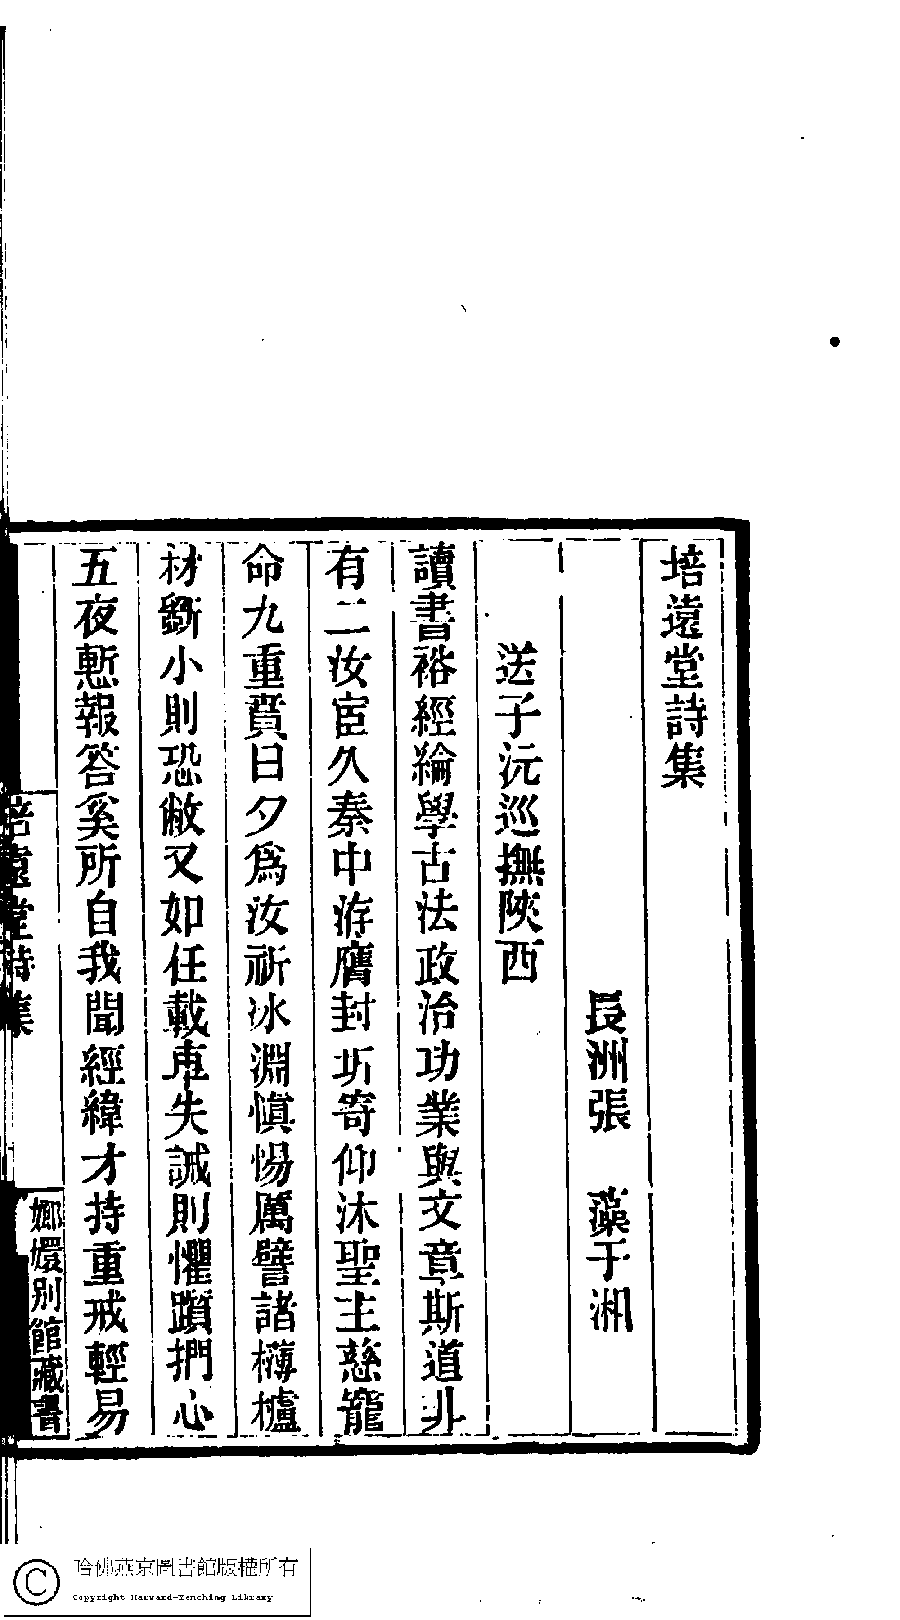 培遠堂詩集
長洲張　藻于湘
送子沅巡撫陝西
讀書裕經綸學古法政治功業與文章斯道非
有二汝宦久秦中洊膺封圻寄仰沐聖主慈寵
命九重賁日夕爲汝祈冰淵愼惕厲譬諸欂櫨
材斲小則恐敝又如任載車失誡則懼躓捫心
五夜慙報答奚所自我聞經緯才持重戒輕易
培遠堂詩集
嫏嬛別館藏書
哈佛燕京圖書館版權所有
Copyright Harvard-Yenching Library